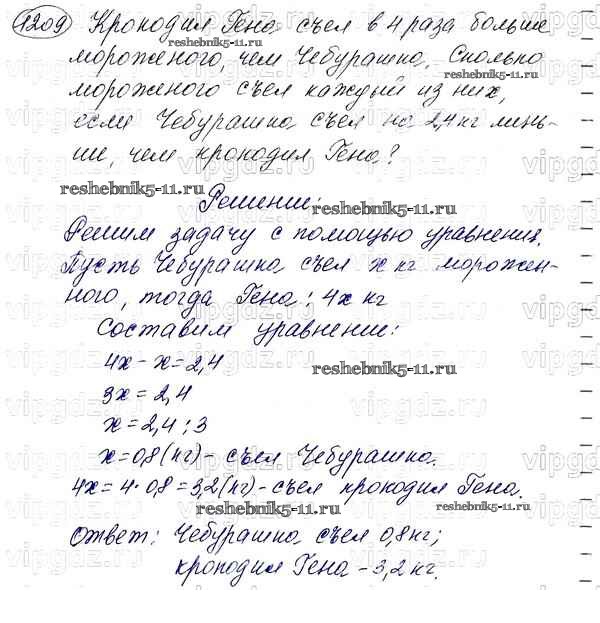 1209 Крокодил Гена съел в 4 раза больше
reshebnik5-11.ru
мороженого, чем Чебурашка. Сколько
мороженого съел каждый из них,
если Чебурашка съел на 2,4 кг мень-
ше, чем крокодил Гена?
reshebnik5-11.ru
Решение:
reshebnik5-11.ru
Решим задачу с помощью уравнения.
Пусть Чебурашка съел х кг морожен-
ного, тогда Гена: 4х кг
Составим уравнение:
4х - х = 2,4
reshebnik5-11.ru
3х = 2,4
х = 2,4 : 3
х = 0,8 (кг) - съел Чебурашка.
4х = 4 · 0,8 = 3,2 (кг) - съел крокодил Гена.
reshebnik5-11.ru
Ответ: Чебурашка съел 0,8 кг;
крокодил Гена - 3,2 кг.
vipgdz.ru